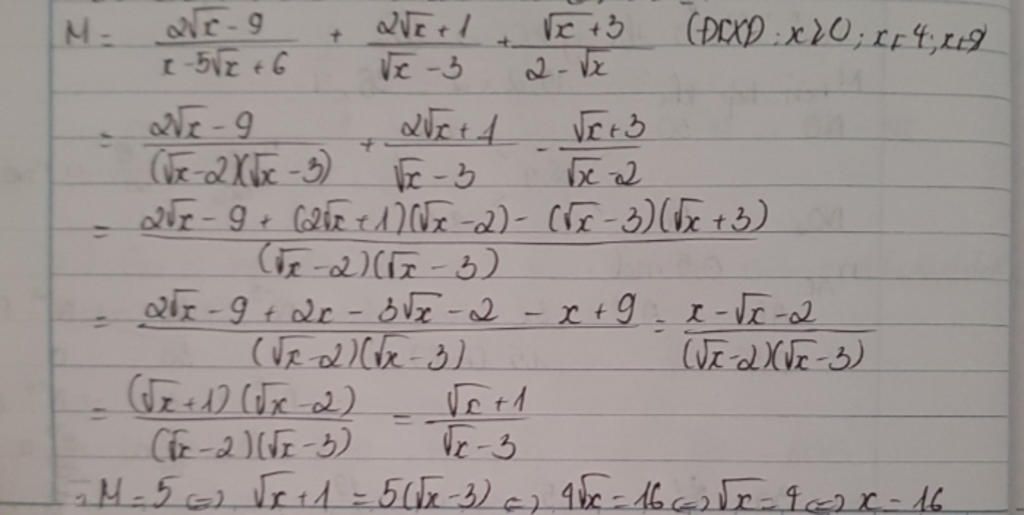 M = (2√x - 9)/(x - 5√x + 6) + (2√x + 1)/(√x - 3) + (√x + 3)/(2 - √x) (ĐKXĐ: x ≥ 0; x ≠ 4; x ≠ 9)
= (2√x - 9)/((√x - 2)(√x - 3)) + (2√x + 1)/(√x - 3) - (√x + 3)/(√x - 2)
= (2√x - 9 + (2√x + 1)(√x - 2) - (√x - 3)(√x + 3))/((√x - 2)(√x - 3))
= (2√x - 9 + 2x - 3√x - 2 - x + 9)/((√x - 2)(√x - 3)) = (x - √x - 2)/((√x - 2)(√x - 3))
= ((√x + 1)(√x - 2))/((√x - 2)(√x - 3)) = (√x + 1)/(√x - 3)
M = 5 ⇔ √x + 1 = 5(√x - 3) ⇔ 4√x = 16 ⇔ √x = 4 ⇔ x = 16